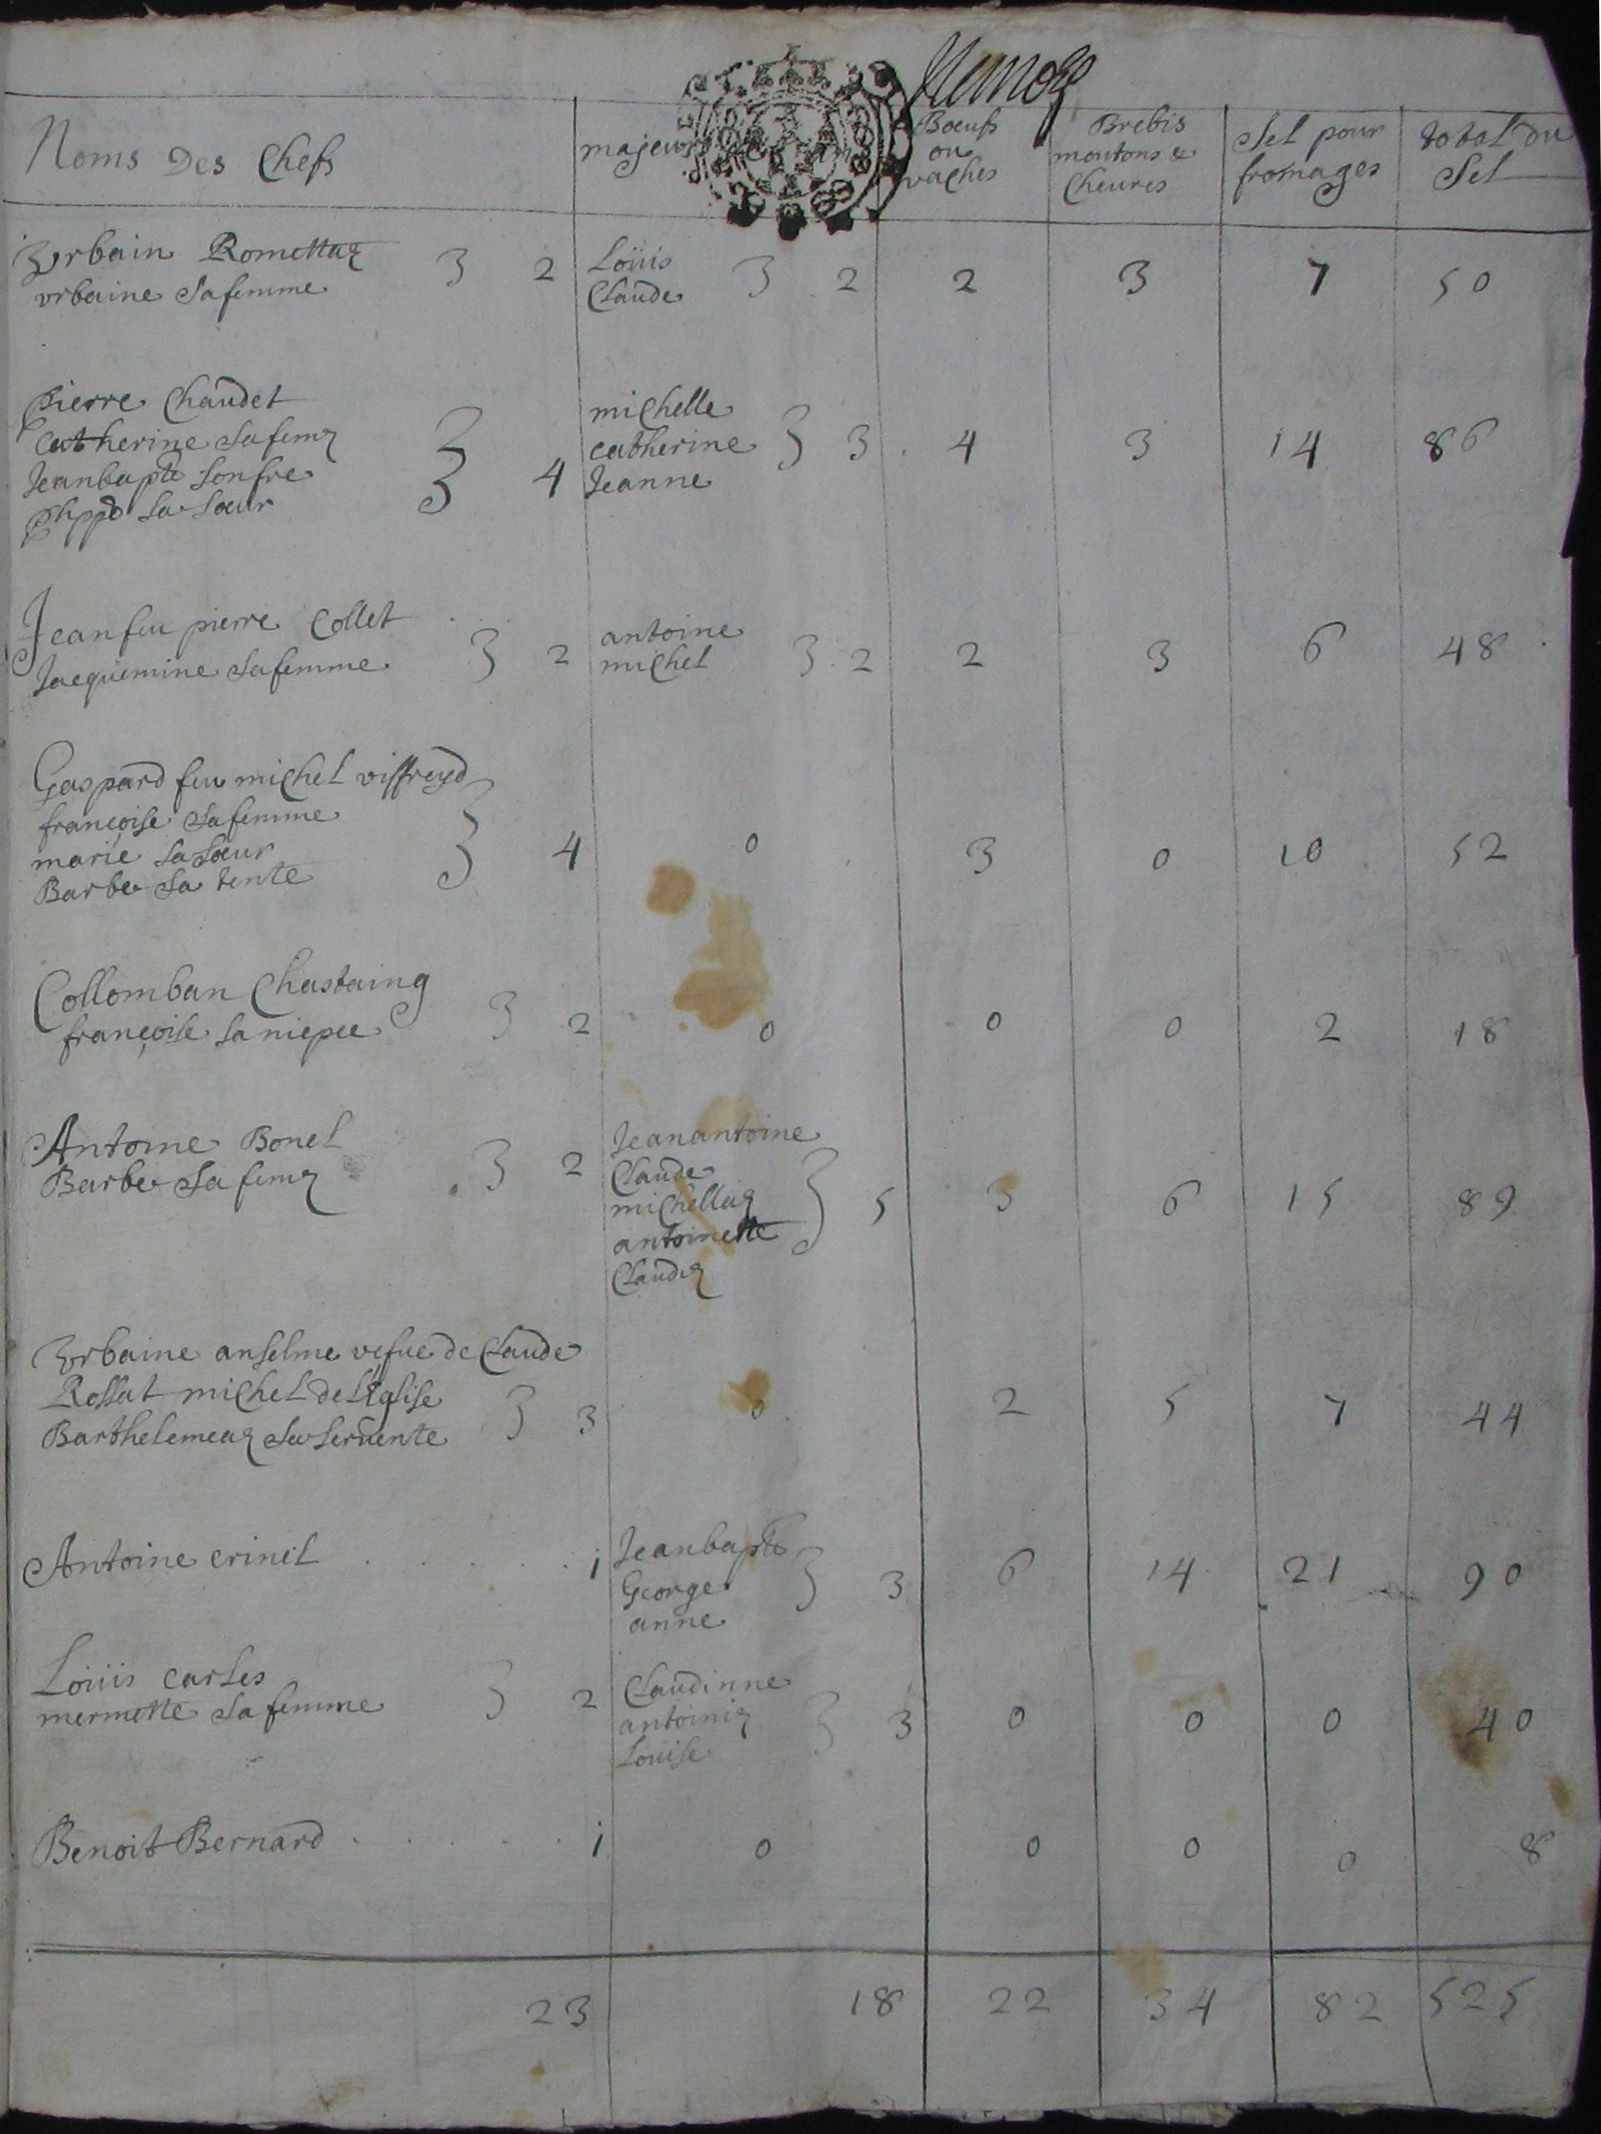 Noms Des Chefs majeurs Boeufs ou vaches Brebis moutons & Cheures Sel pour fromages total du Sel
Vrbain Romettaz 3 2 Loüis 3 2 2 3 7 50
vrbaine Safemme Claude
pierre Chaudet michelle
Catherine Safemz 3 4 catherine 3 3 4 3 14 86
Jeanbapte Sonfre Jeanne
phppe Sa Soeur
Jean feu pierre Collet 3 2 antoine 3 2 2 3 6 48
Jacquemine Safemme michel
Gaspard feu michel viffreyd
françoise Safemme
marie SaSoeur 3 4 0 3 0 10 52
Barbe Sa tente
Collomban Chastaing 3 2 0 0 0 2 18
françoise Sa niepce
Antoine Bonel 3 2 Jeanantoine
Barbe Sa femz Claude
michellaz 3 5 3 6 15 89
antoinette
Claudaz
Vrbaine anselme vefue de Claude
Rossat michel de L'Eglise 3 3 0 2 5 7 44
Barthelemeaz Sa Seruente
Antoine crinel . . . . . 1 Jeanbapte
George 3 3 6 14 21 90
anne
Loüis Carles 3 2 Claudinne
mermette Safemme antoiniz 3 3 0 0 0 40
Loüise
Benoit Bernard . . . . . 1 0 0 0 0 8
23 18 22 34 82 525